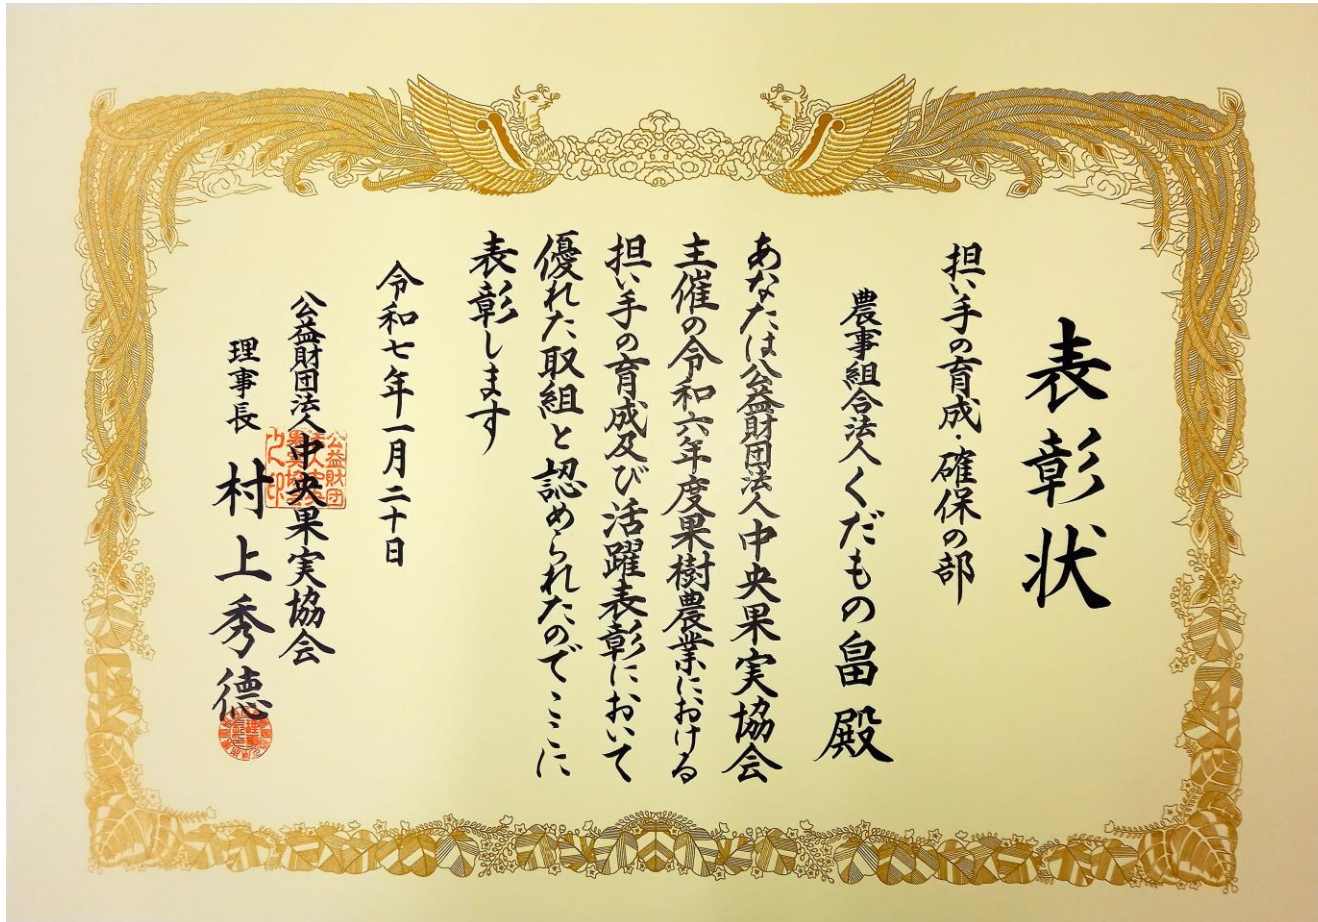 表彰状
担い手の育成・確保の部
農事組合法人くだもの畠 殿
あなたは公益財団法人中央果実協会
主催の令和六年度果樹農業における
担い手の育成及び活躍表彰において
優れた取組と認められたのでここに
表彰します
令和七年一月二十日
公益財団法人中央果実協会
理事長 村上秀德